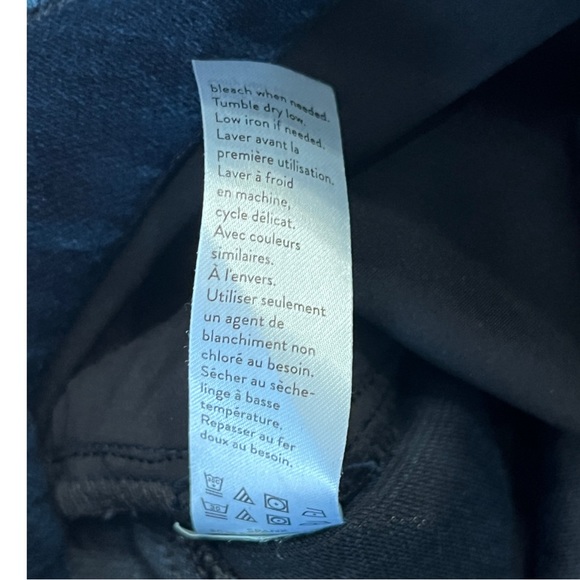 bleach when needed.
Tumble dry low.
Low iron if needed.
Laver avant la
première utilisation.
Laver à froid
en machine,
cycle délicat.
Avec couleurs
similaires.
À l'envers.
Utiliser seulement
un agent de
blanchiment non
chloré au besoin.
Sécher au sèche-
linge à basse
température.
Repasser au fer
doux au besoin.